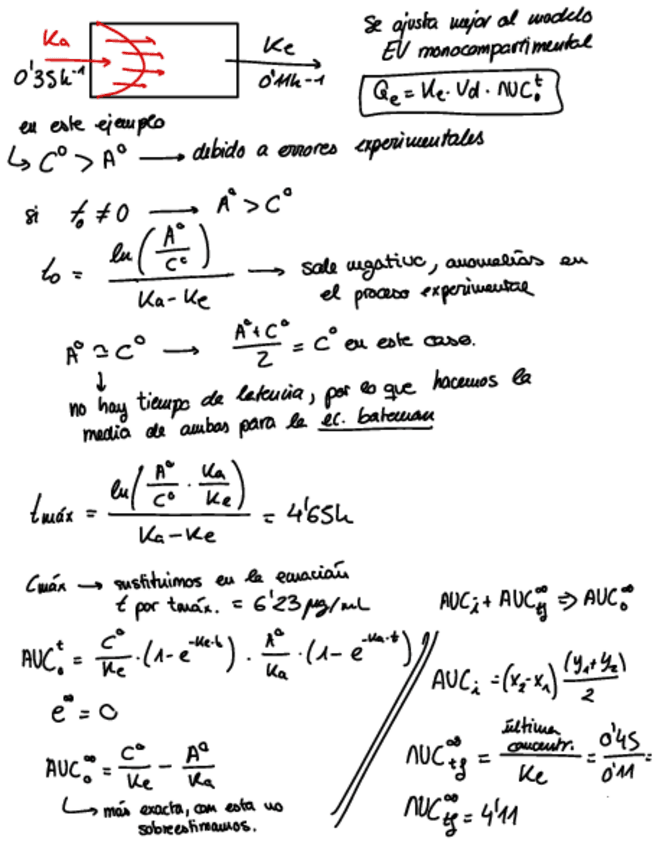 Ka
0'35h⁻¹
Ke
0'11h⁻¹
Se ajusta mejor al modelo
EV monocompartimental
Qe = Ke · Vd · AUC₀ᵗ
en este ejemplo
↳ C⁰ > A⁰ → debido a errores experimentales
si t₀ ≠ 0 → A⁰ > C⁰
t₀ = ln(A⁰/C⁰) / (Ka - Ke) → sale negativo, anomalías en
el proceso experimental
A⁰ ≃ C⁰ → (A⁰+C⁰)/2 = C⁰ en este caso.
↓
no hay tiempo de latencia, por lo que hacemos la
media de ambas para la ec. bateman
tmáx = ln(A⁰/C⁰ · Ka/Ke) / (Ka - Ke) = 4'65h
Cmáx → sustituimos en la ecuación
t por tmáx. = 6'23 µg/mL
AUC₀ᵗ = C⁰/Ke · (1 - e^(-Ke·t)) · A⁰/Ka · (1 - e^(-Ka·t))
e^∞ = 0
AUC₀^∞ = C⁰/Ke - A⁰/Ka
↳ más exacta, con esta no
sobreestimamos.
AUCᵢ + AUC_tf^∞ ⇒ AUC₀^∞
AUCᵢ = (x₂ - x₁) (y₁ + y₂)/2
AUC_tf^∞ = última concentr. / Ke = 0'45/0'11 =
AUC_tf^∞ = 4'11